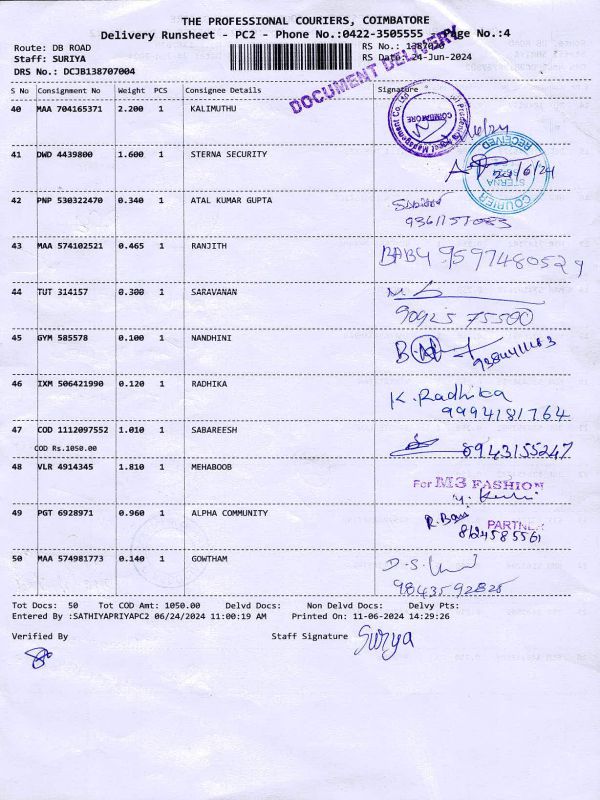 THE PROFESSIONAL COURIERS, COIMBATORE
Delivery Runsheet - PC2 - Phone No.:0422-3505555 - Page No.:4
Route: DB ROAD
Staff: SURIYA
DRS No.: DCJB138707004
RS No.:
RS Date: 24-Jun-2024
DOCUMENT DELIVERY
S No Consignment No Weight PCS Consignee Details Signature
40 MAA 704165371 2.200 1 KALIMUTHU
COIMBATORE
41 DWD 4439800 1.600 1 STERNA SECURITY
24/6/24
RECEIVED
STERNA
COURIER
42 PNP 530322470 0.340 1 ATAL KUMAR GUPTA
43 MAA 574102521 0.465 1 RANJITH
BABY 9597480529
44 TUT 314157 0.300 1 SARAVANAN
90925 75500
45 GYM 585578 0.100 1 NANDHINI
46 IXM 506421990 0.120 1 RADHIKA
K. Radhika
9994181764
47 COD 1112097552 1.010 1 SABAREESH
COD Rs.1050.00
8943155247
48 VLR 4914345 1.810 1 MEHABOOB
For M3 FASHION
49 PGT 6928971 0.960 1 ALPHA COMMUNITY
PARTNER
8624585561
50 MAA 574981773 0.140 1 GOWTHAM
9843592825
Tot Docs: 50 Tot COD Amt: 1050.00 Delvd Docs: Non Delvd Docs: Delvy Pts:
Entered By :SATHIYAPRIYAPC2 06/24/2024 11:00:19 AM Printed On: 11-06-2024 14:29:26
Verified By Staff Signature Surya